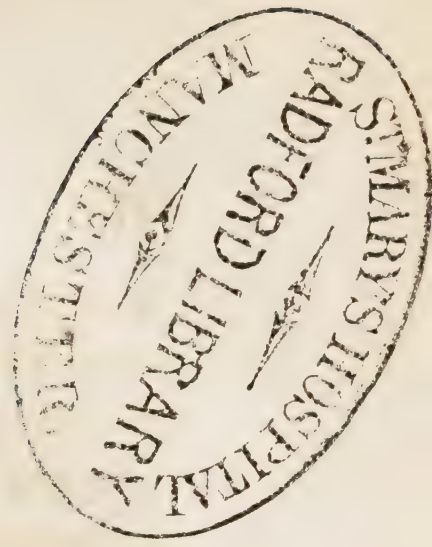 ST MARY'S HOSPITAL
RADFORD LIBRARY
MANCHESTER